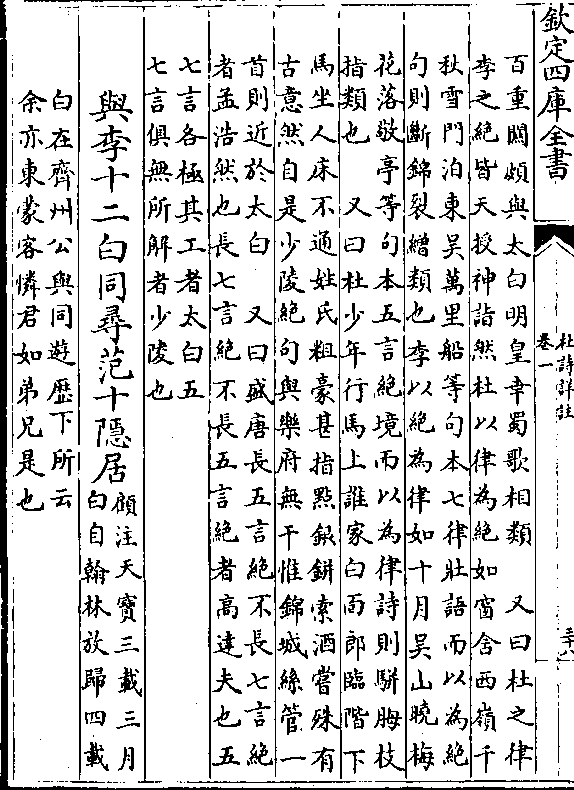 欽定四庫全書
杜詩詳註
卷一
百重關頗與太白明皇幸蜀歌相類　又曰杜之律
李之絕皆天授神詣然杜以律為絕如窗含西嶺千
秋雪門泊東吳萬里船等句本七律壯語而以為絕
句則斷錦裂繒類也李以絕為律如十月吳山曉梅
花落敬亭等句本五言絕境而以為律詩則駢拇枝
指類也　又曰杜少年行馬上誰家白面郎臨階下
馬坐人床不通姓氏粗豪甚指點銀缾索酒嘗殊有
古意然自是少陵絕句與樂府無干惟錦城絲管一
首則近於太白　又曰盛唐長五言絕不長七言絕
者孟浩然也長七言絕不長五言絕者高達夫也五
七言各極其工者太白五
七言俱無所解者少陵也
與李十二白同尋范十隱居
顧注天寶三載三月
白自翰林放歸四載
白在齊州公與同遊歷下所云
余亦東蒙客憐君如弟兄是也